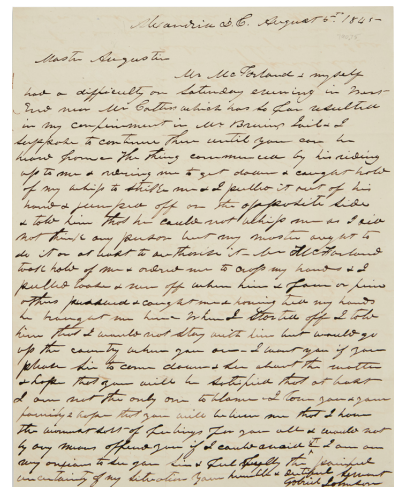 Alexandria D.C. August 6th 1845
Master Augustus
Mr McFarland & myself
had a difficulty on Saturday evening in West
End near Mr Catts which has so far resulted
in my confinement in Mr Bruins Jail & I
suppose to continue there until you can be
heard from - The thing commenced by his riding
up to me & ordering me to get down & caught hold
of my whip to strike me & I pulled it out of his
hand & jumped off on the opposite side
& told him that he could not whip me as I did
not think any person but my master ought to
do it or at least to authorise it - Mr McFarland
took hold of me & ordered me to cross my hands & I
pulled loose & run off when him & four or five
others pursued & caught me & having tied my hands
he brought me here When I started off I told
him that I would not stay with him but would go
up the country where you are - I want you if you
please Sir to come down & see about the matter
& hope that you will be satisfied that at least
I am not the only one to blame - I love you & your
family & hope that you will believe me that I have
the utmost sort of feelings for you all & would not
by any means offend you if I could avoid it I am
very anxious to see you Sir & feel the painful
uncertainty of my situation Your humble & dutiful Servant
Gabriel Johnson